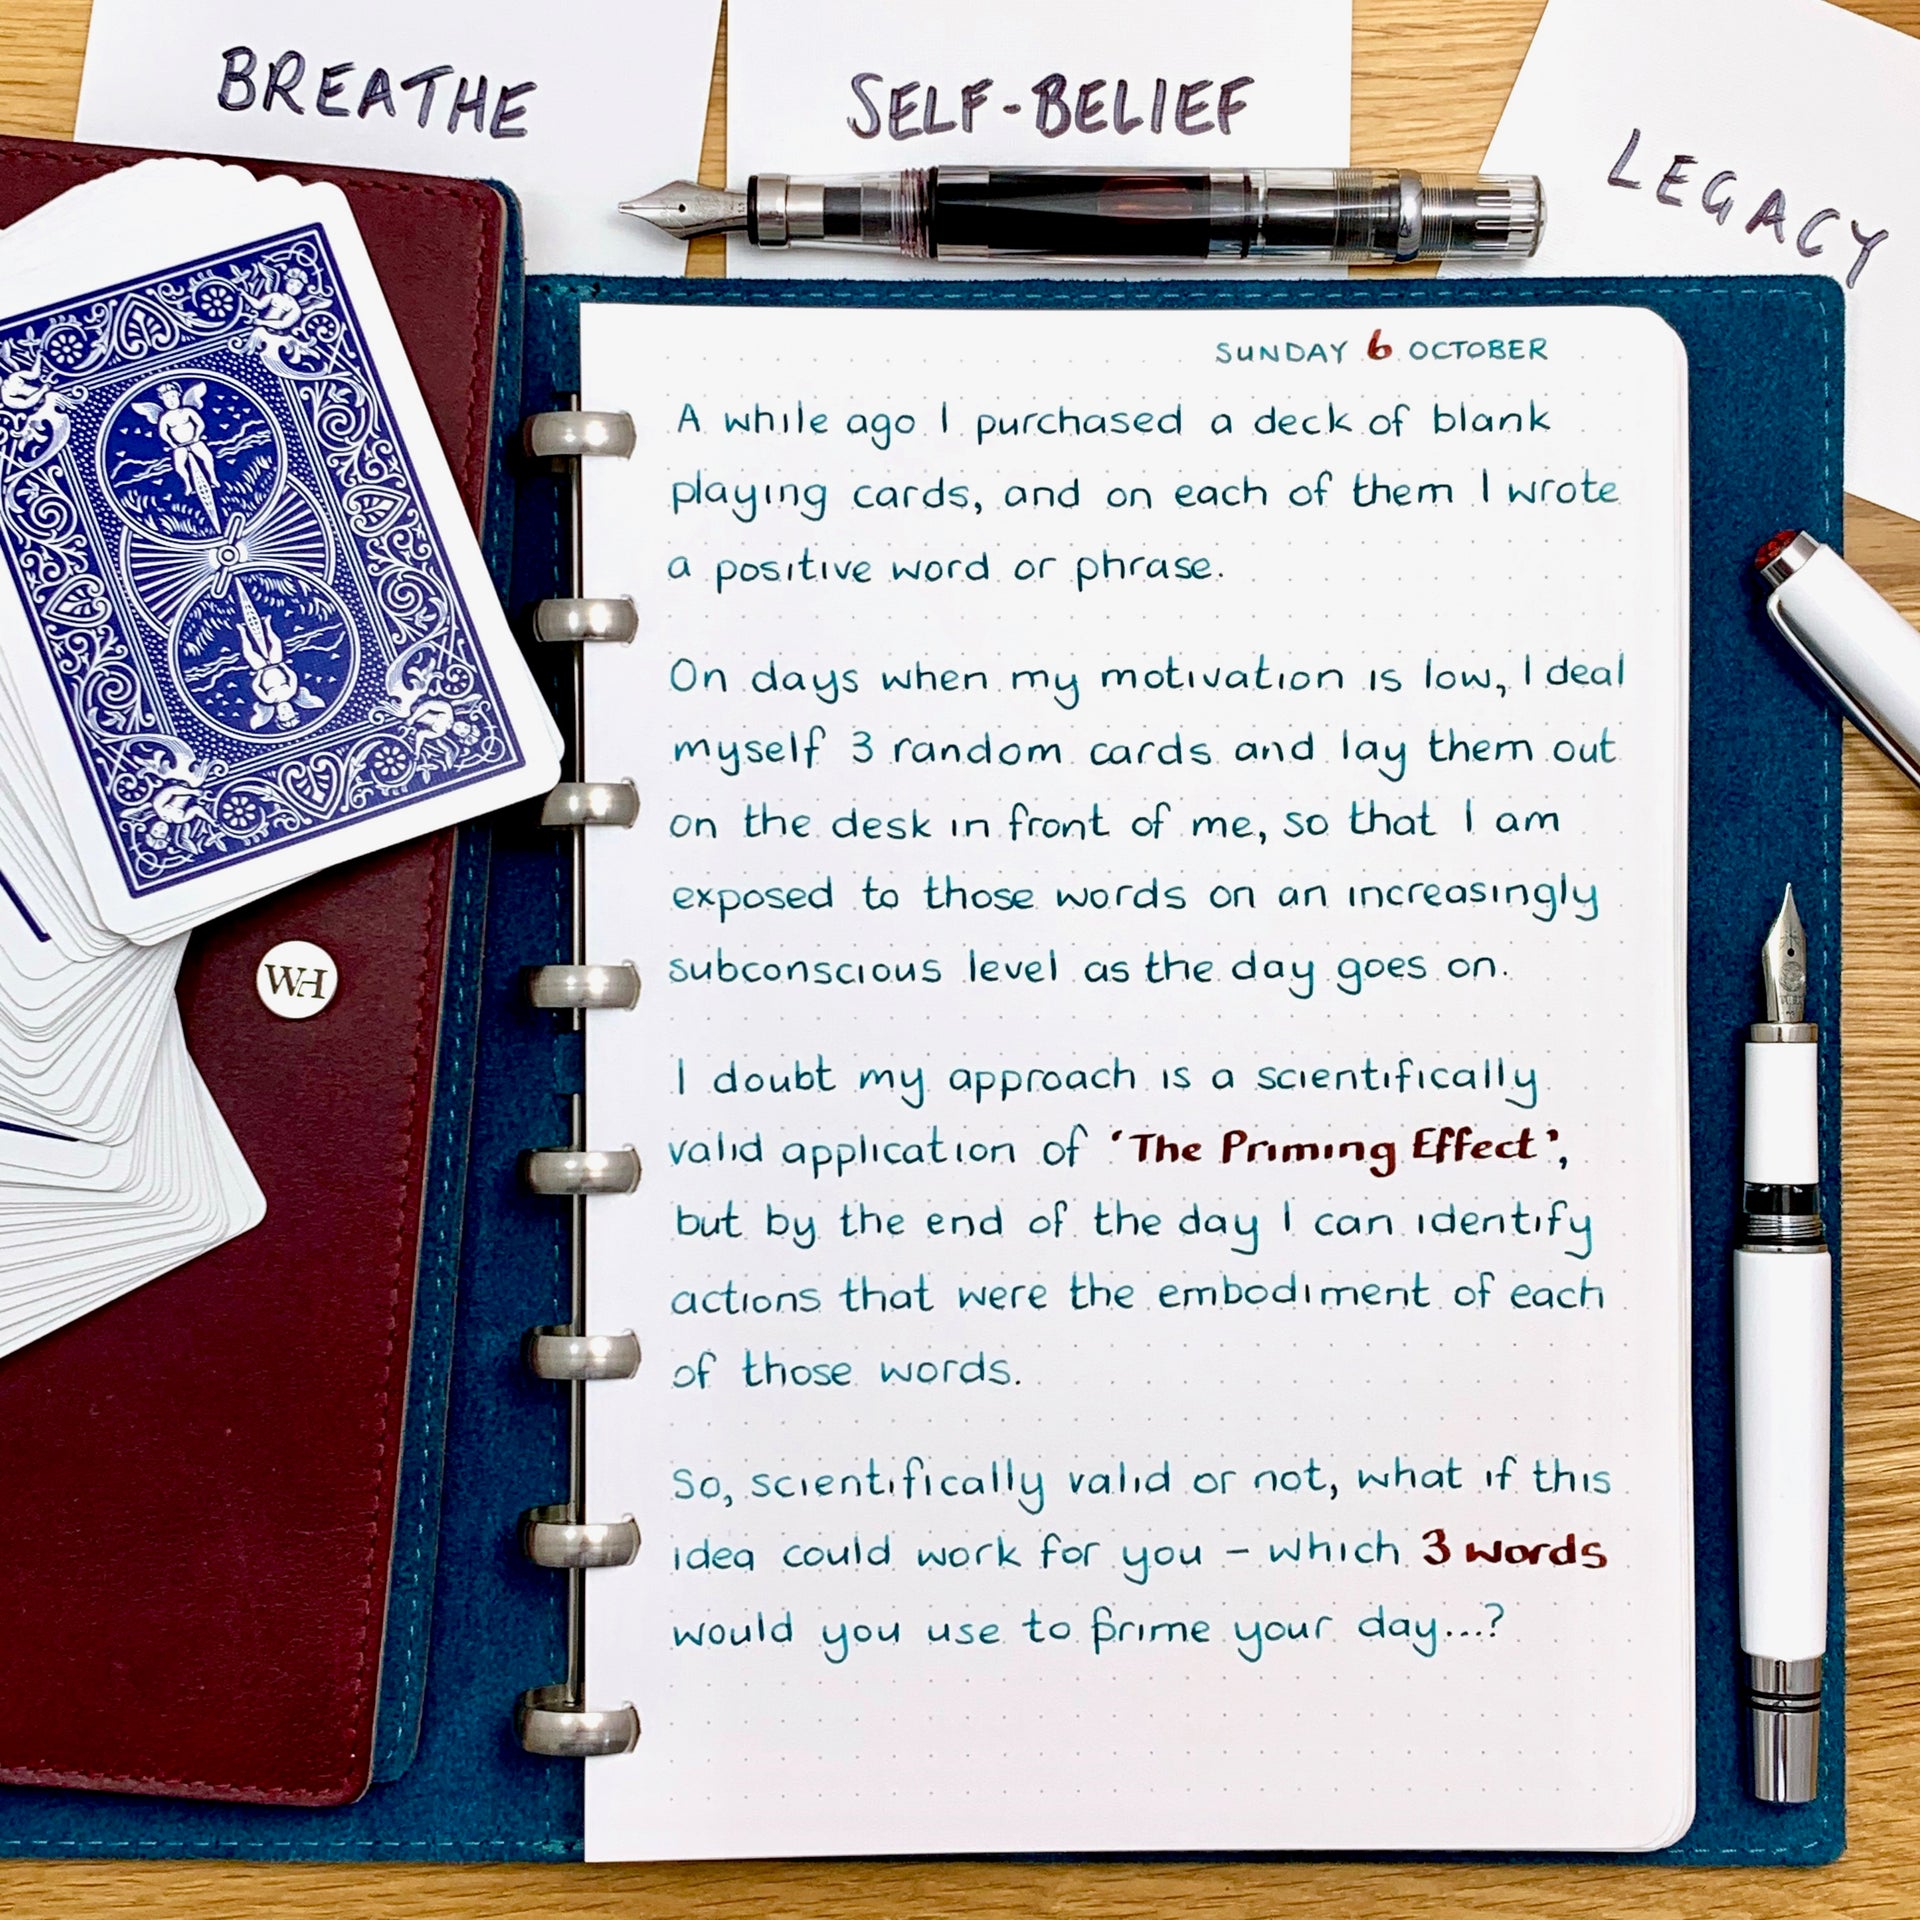 BREATHE
SELF-BELIEF
LEGACY
WH
SUNDAY 6 OCTOBER
A while ago I purchased a deck of blank
playing cards, and on each of them I wrote
a positive word or phrase.
On days when my motivation is low, I deal
myself 3 random cards and lay them out
on the desk in front of me, so that I am
exposed to those words on an increasingly
subconscious level as the day goes on.
I doubt my approach is a scientifically
valid application of 'The Priming Effect',
but by the end of the day I can identify
actions that were the embodiment of each
of those words.
So, scientifically valid or not, what if this
idea could work for you – which 3 words
would you use to prime your day...?